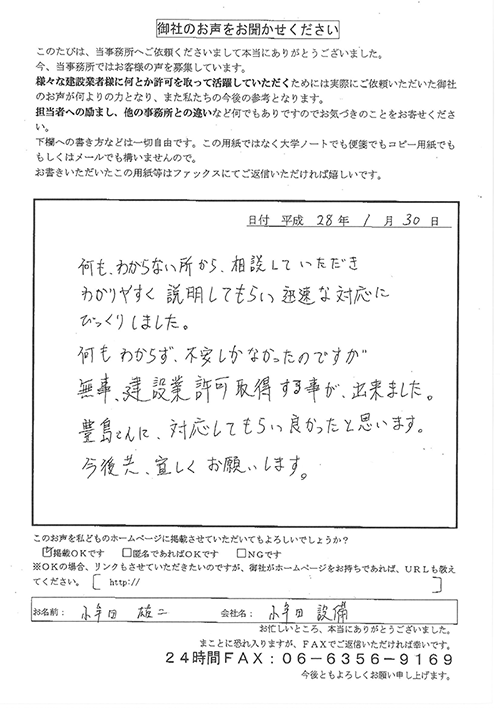 御社のお声をお聞かせください
このたびは、当事務所へご依頼くださいまして本当にありがとうございました。
今、当事務所ではお客様の声を募集しています。
様々な建設業者様に何とか許可を取って活躍していただくためには実際にご依頼いただいた御社
のお声が何よりの力となり、また私たちの今後の参考となります。
担当者への励まし、他の事務所との違いなど何でもありですのでお気づきのことをお寄せくださ
い。
下欄への書き方などは一切自由です。この用紙ではなく大学ノートでも便箋でもコピー用紙でも
もしくはメールでも構いませんので。
お書きいただいたこの用紙等はファックスにてご返信いただければ嬉しいです。
日付 平成 28 年 1 月 30 日
何も、わからない所から、相談して いただき
わかりやすく 説明してもらい 迅速な対応に
びっくりしました。
何も わからず、不安しかなかったのですが
無事、建設業許可取得する事が、出来ました。
豊島さんに、対応してもらい良かったと思います。
今後共、宜しく お願いします。
このお声を私どものホームページに掲載させていただいてもよろしいでしょうか?
☑掲載OKです □匿名であればOKです □NGです
※OKの場合、リンクもさせていただきたいのですが、御社がホームページをお持ちであれば、URLも教え
てください。[ http:// ]
お名前: 小牟田 雄二 会社名: 小牟田 設備
お忙しいところ、本当にありがとうございました。
まことに恐れ入りますが、FAXでご返信いただければ幸いです。
24時間FAX:06-6356-9169
今後ともよろしくお願い申し上げます。